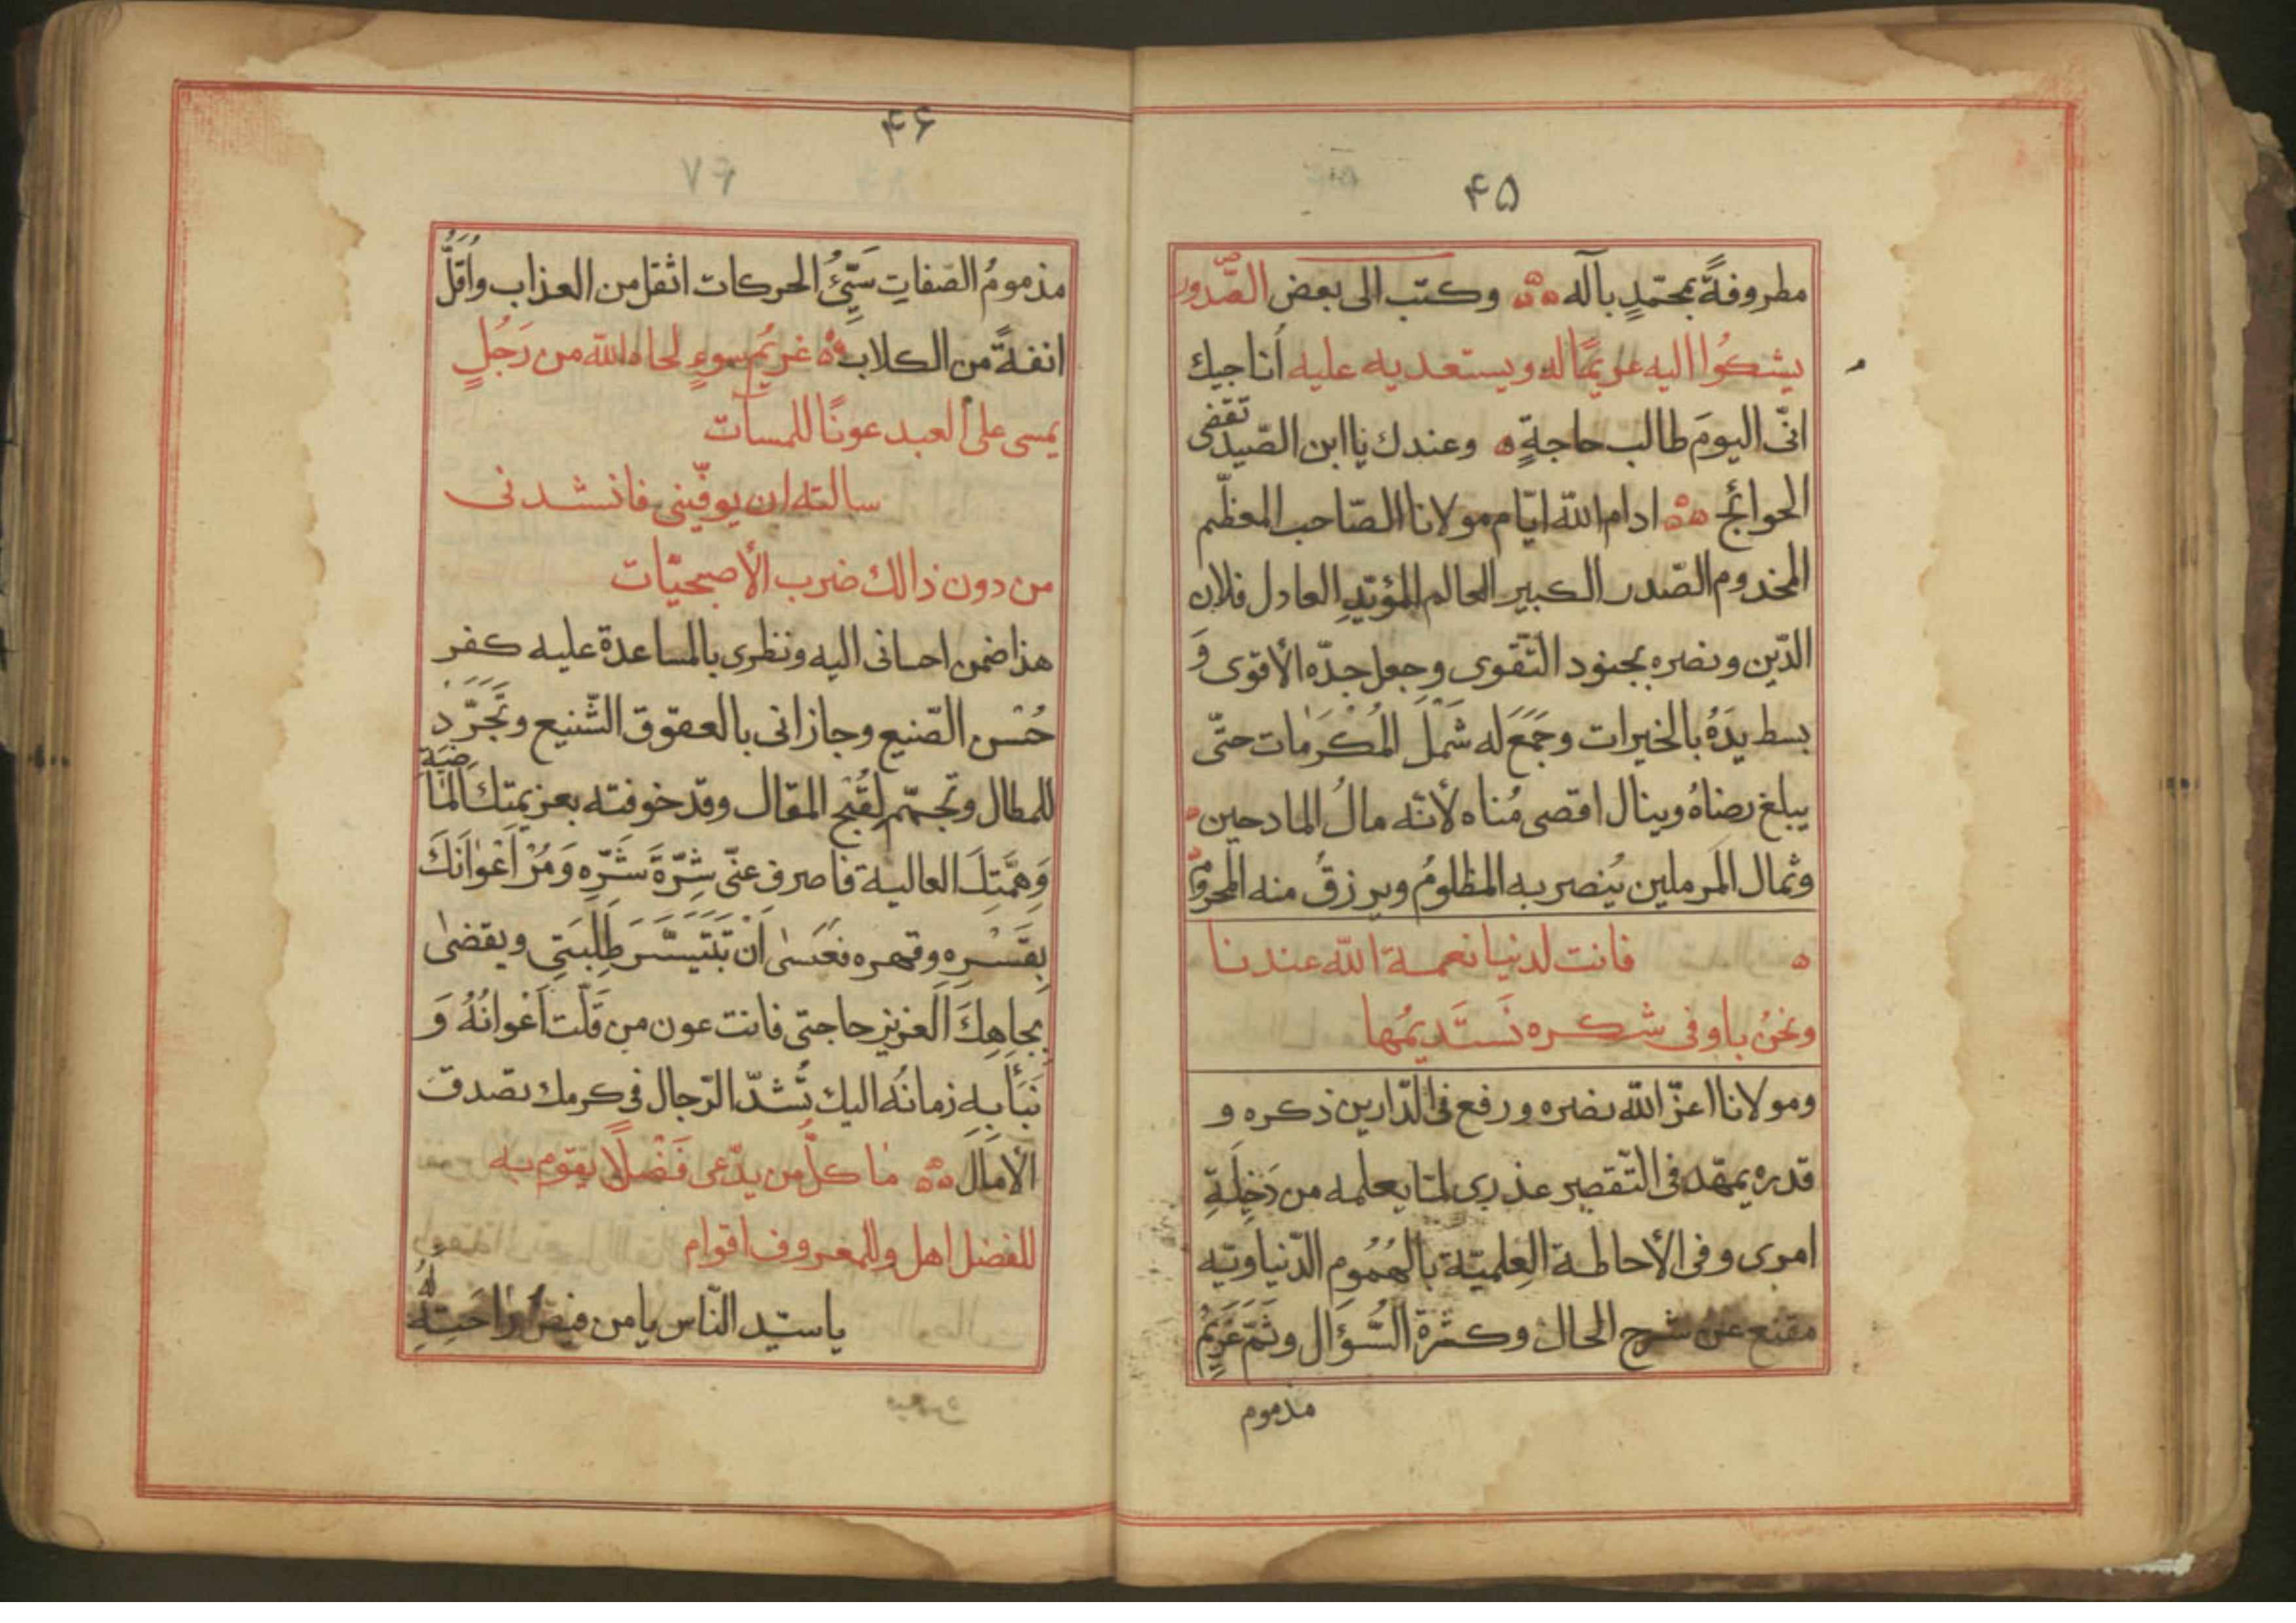 ۴۵
مطروفةً بمحمّدٍ بآله وكتب الى بعض الصّدور
يشكوا اليه غريمًا له ويستعديه عليه أناجيك
انّى اليومَ طالب حاجةٍ وعندك ياابن الصّيد تقفى
الحوائج ادام الله ايّام مولانا الصّاحب المعظّم
المخدوم الصّدر الكبير العالم المؤيّدِ العادل فلان
الدّين ونصره بجنود التّقوى وجعل جدّه الأقوى وَ
بسط يدَهُ بالخيرات وجَمَعَ له شَمْلَ المُكْرَمات حتّى
يبلغ رضاهُ وينال اقصى مُناه لأنّه مالُ المادحين
وثمال المَرملين يُنصر به المظلومُ ويرزقُ منه المحرومُ
فانت لدنيا نعمة الله عندنا
ونحنُ باوفى شكره نَستَديمُها
ومولانا اعزّ الله نصره ورفع فى الدّارين ذكره و
قدره يمهّد فى التّقصير عذرى لمّا يعلمه من دَخِلَةِ
امرى وفى الأحاطة العِلميّة بالهُمُوم الدّنياويّه
مقنع عن شرح الحال وكثرة السُّؤال وثَمّ غَرِيمٌ
مذموم
۴۶
مذمومُ الصّفاتِ سَيّئُ الحركات اثقل من العذاب واَقَلُّ
انفةً من الكلاب غريُم سوءٍ لحاه الله من رَجُلٍ
يمسى على العبد عونًا للمسآت
سالته ان يوفّينى فانشدنى
من دون ذالك ضرب الأصبحيّات
هذا ضمن احسانى اليه ونظرى بالمساعدة عليه كفر
حُسْن الصّنيع وجازانى بالعقوق الشّنيع وتَجَرّدَ
للمطال وتجهّم لِقُبْح المقال وقد خوفته بعزيمتك الماضيَة
وَهِمَّتِكَ العالية فاصرف عنّى شِرّةَ شَرّه وَمُرْ اَعْوانَكَ
بِقَسْرِه وقهره فَعَسٰى اَنْ تَتَيَسّرَ طِلْبَتِى ويقضىٰ
بِجاهِكَ العزيز حاجتى فانت عون من قَلّت اَعْوانُهُ وَ
نَبَأ به زمانُه اليك تُشدّ الرّجال فى كرمك تصدق
الأمال مٰا كلّ من يدّعى فَضْلًا يقوم به
للفضل اهل وللمعروف اقوام
ياسيّد النّاس يامن فيض راحَتِهِ